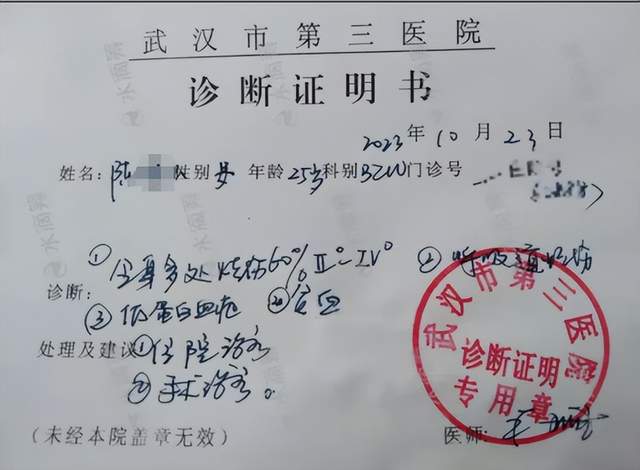 武汉市第三医院
诊断证明书
2023年10月23日
姓名:陈 性别 女 年龄 25岁 科别 BICU 门诊号
诊断:
①全身多处烧伤60% II°-IV° ②呼吸道烧伤
③低蛋白血症 ④贫血
处理及建议 ①住院治疗
②手术治疗。
(未经本院盖章无效)
医师:
武汉市第三医院
诊断证明
专用章
水滴筹